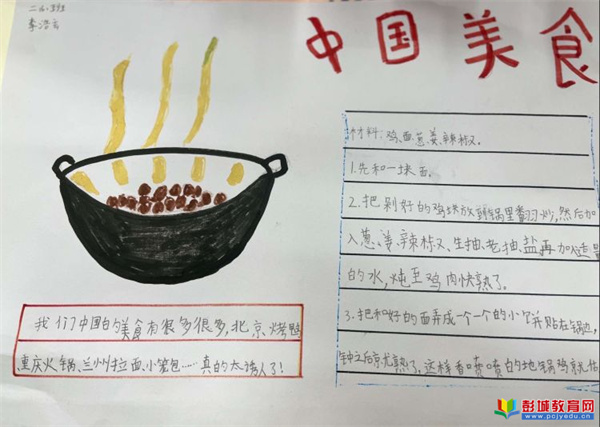 二(6)班
李浩
中国美食
材料:鸡、面、葱、姜、辣椒。
1.先和一块面。
2.把剁好的鸡块放到锅里翻炒,然后加
入葱、姜、辣椒、生抽、老抽、盐再加适量
的水,炖至鸡肉快熟了。
3.把和好的面弄成一个一个的小饼贴在锅边,
钟之后京尤熟了,这样香喷喷的地锅鸡就
我们中国的美食有很多很多,北京烤鸭
重庆火锅、兰州拉面、小笼包……真的太诱人了!
彭城教育网
www.pcjyedu.cn